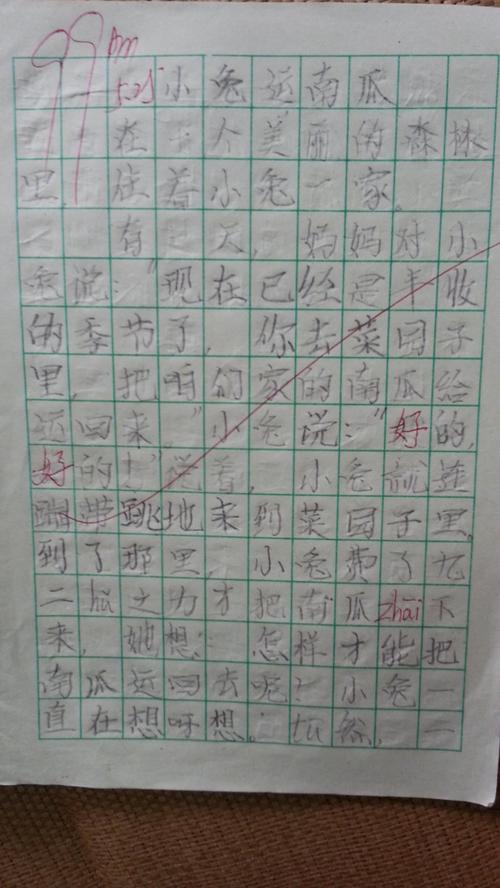 99
小兔运南瓜
在一个美丽的森林
里,住着小兔一家。
有一天,妈妈对小
兔说:"现在已经是丰收
的季节了,你去菜园子
里,把咱们家的南瓜给
运回来。"小兔说:"好的,
好的!"说着,小兔就蹦
蹦跳地来到菜园子里。
到了那里,小兔费了九
二hǔ之力才把南瓜zhāi下
来,她想:怎样才能把
南瓜运回去呢?小兔一
直在想呀想。tū然,一